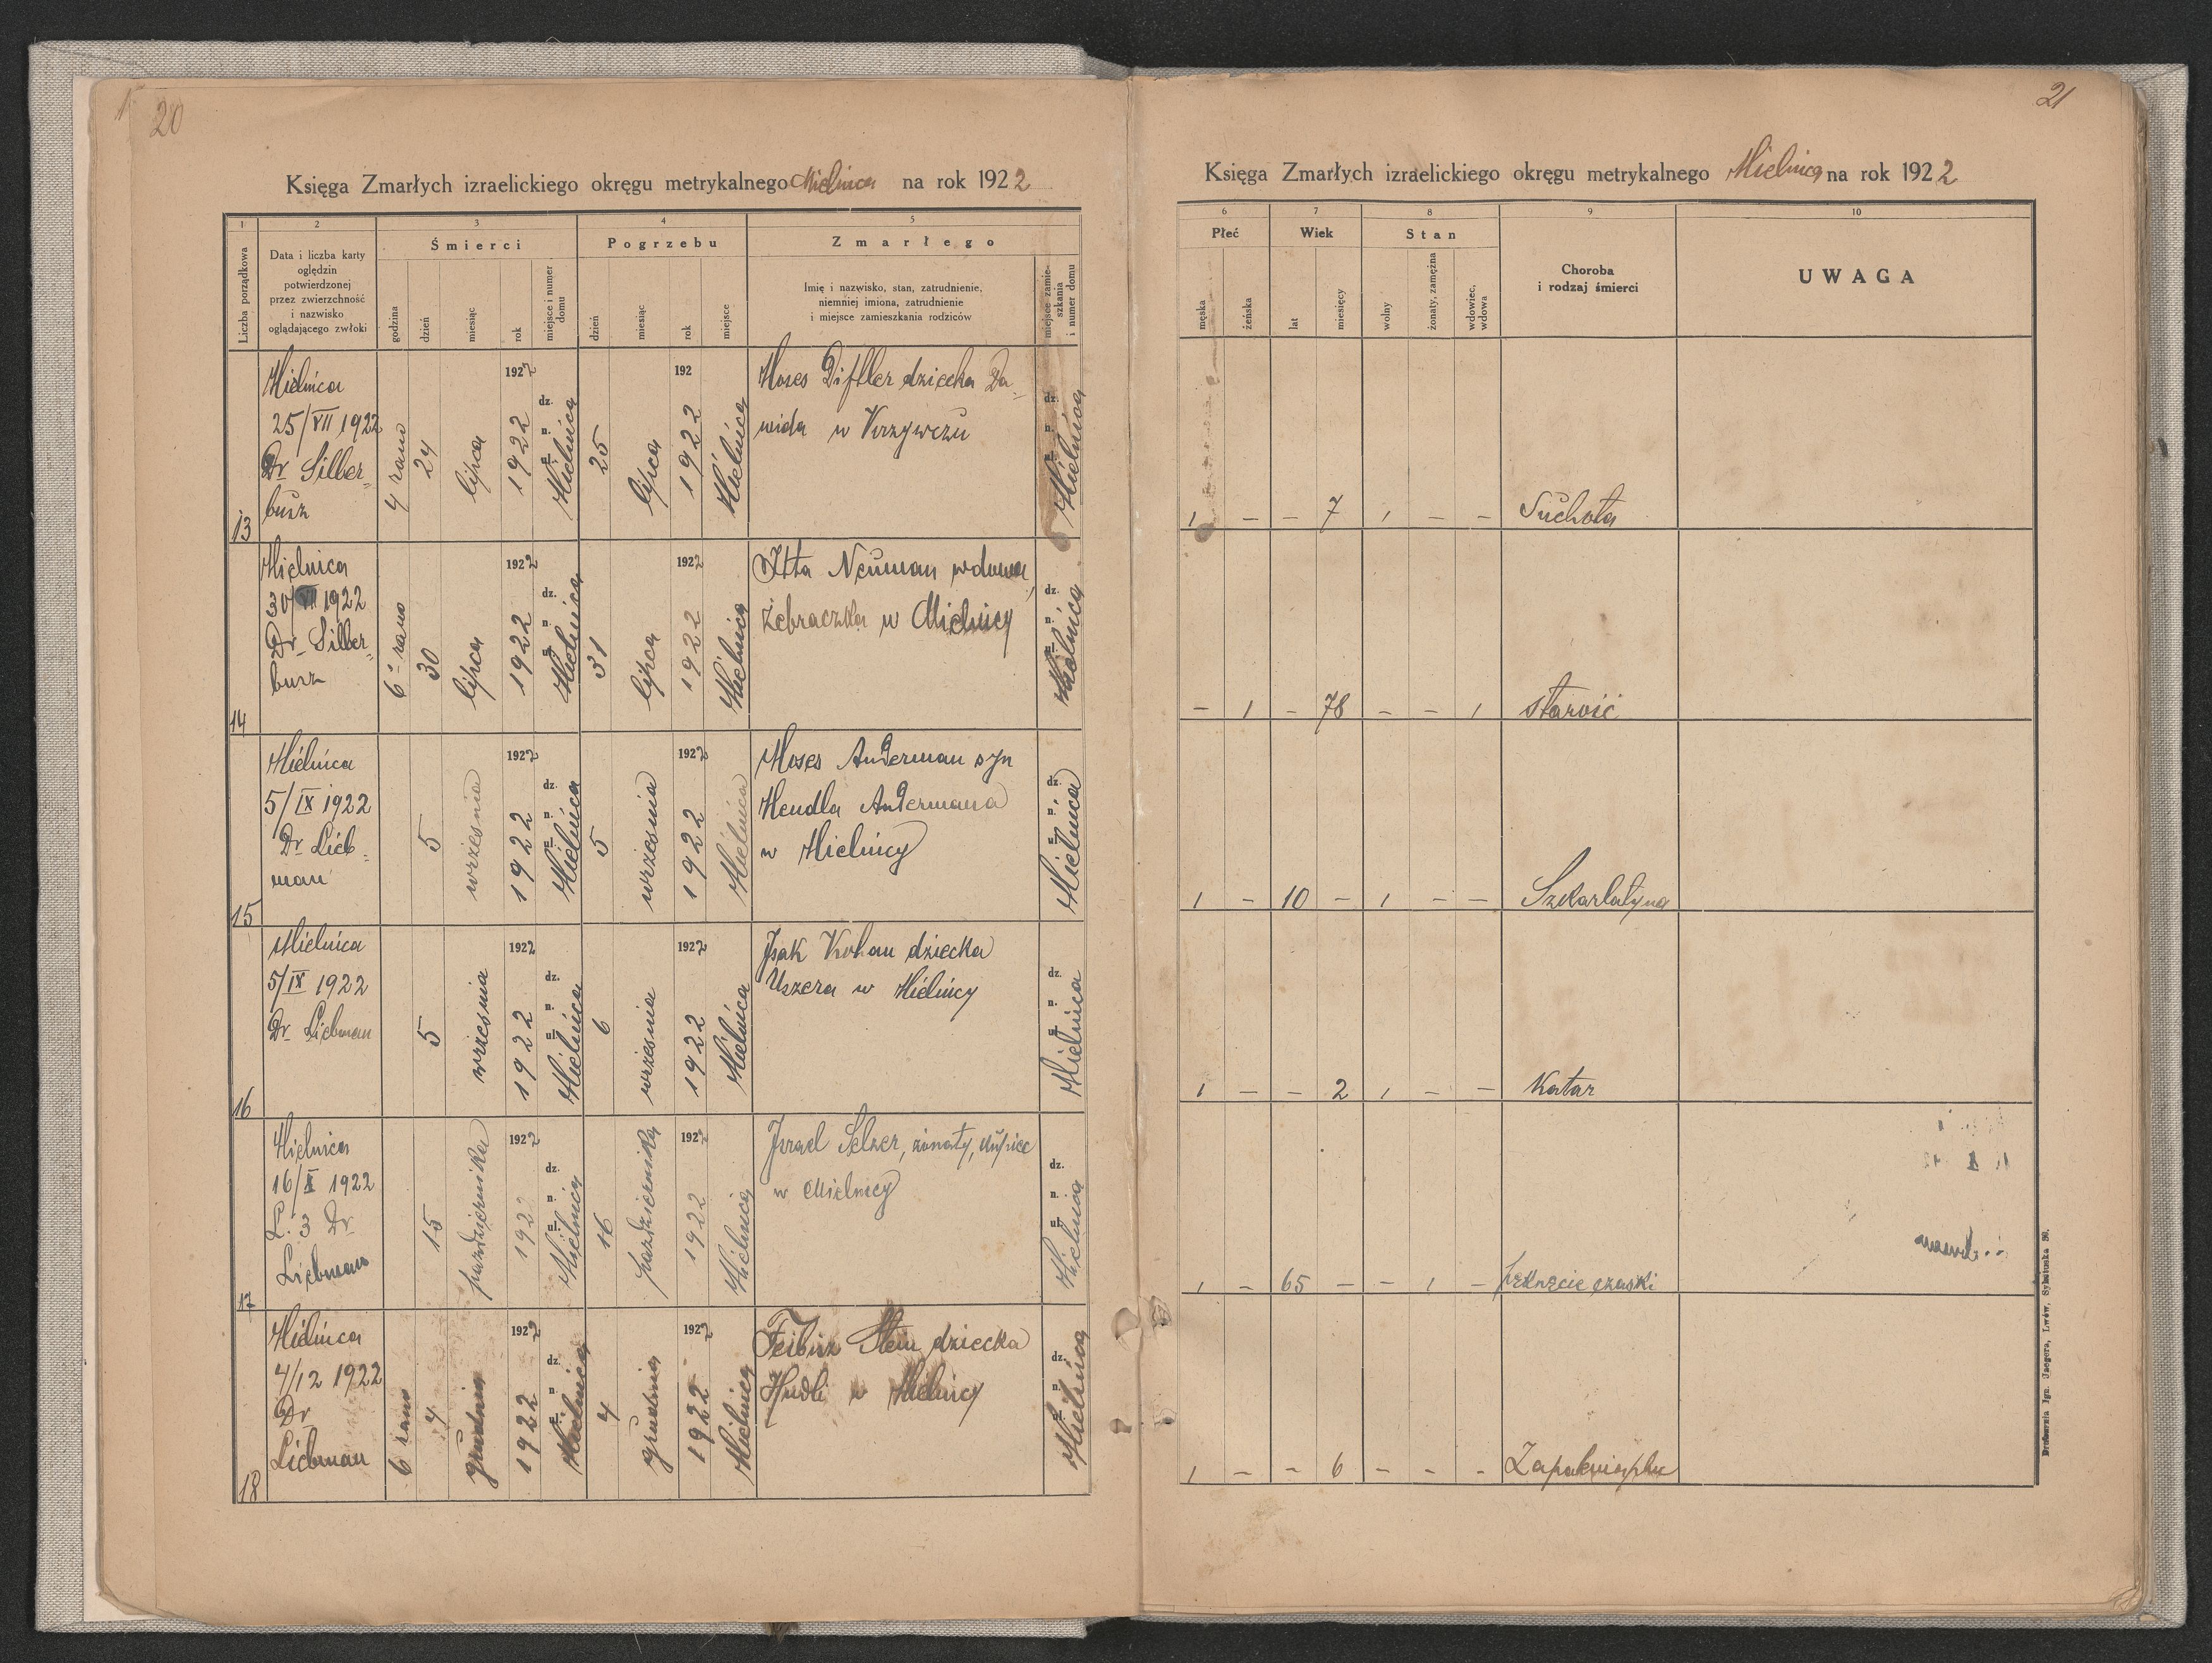 20
Księga Zmarłych izraelickiego okręgu metrykalnego Mielnica na rok 1922
1 2 3 4 5
Liczba porządkowa
Data i liczba karty
oględzin
potwierdzonej
przez zwierzchność
i nazwisko
oglądającego zwłoki
Śmierci
godzina
dzień
miesiąc
rok
miejsce i numer
domu
Pogrzebu
dzień
miesiąc
rok
miejsce
Zmarłego
Imię i nazwisko, stan, zatrudnienie,
niemniej imiona, zatrudnienie
i miejsce zamieszkania rodziców
miejsce zamie-
szkania
i numer domu
13
Mielnica
25/VII 1922
Dr Silber-
busz
4 rano
24
lipca
1922
1922
dz.
n.
Mielnica
25
lipca
192
1922
Mielnica
Moses Diftler dziecko Da-
wida w Krzywczu
dz.
n.
Mielnica
14
Mielnica
30/VII 1922
Dr Silber-
busz
6 rano
30
lipca
1922
1922
dz.
n.
Mielnica
31
lipca
1922
1922
Mielnica
Itta Neuman wdowa,
żebraczka w Mielnicy
dz.
n.
Mielnica
15
Mielnica
5/IX 1922
Dr Lieb-
man
5
września
1922
1922
dz.
n.
Mielnica
5
września
1922
1922
Mielnica
Moses Anderman syn
Hendla Andermana
w Mielnicy
dz.
n.
Mielnica
16
Mielnica
5/IX 1922
Dr Liebman
5
września
1922
1922
dz.
n.
Mielnica
6
września
1922
1922
Mielnica
Isak Kohan dziecka
Uszera w Mielnicy
dz.
n.
Mielnica
17
Mielnica
16/X 1922
L. 3 Dr
Liebman
15
października
1922
192
dz.
n.
Mielnica
16
października
1922
1922
Mielnica
Israel Selzer, żonaty, kupiec
w Mielnicy
dz.
n.
Mielnica
18
Mielnica
4/12 1922
Dr
Liebman
6 rano
4
grudnia
1922
1922
dz.
n.
Mielnica
4
grudnia
1922
1922
Mielnica
Feibisz Stein dziecka
Hudli w Mielnicy
dz.
n.
Mielnica
21
Księga Zmarłych izraelickiego okręgu metrykalnego Mielnica na rok 1922
6 7 8 9 10
Płeć
męska
żeńska
Wiek
lat
miesięcy
Stan
wolny
żonaty, zamężna
wdowiec,
wdowa
Choroba
i rodzaj śmierci
UWAGA
1 – – 7 1 – – Suchota
– 1 – 78 – – 1 starość
1 – 10 – 1 – – Szkarlatyna
1 – – 2 1 – – Katar
1 – 65 – – 1 – pęknięcie czaszki
1 – – 6 – – –
Drukarnia Ign. Jaegera, Lwów, Sykstuska